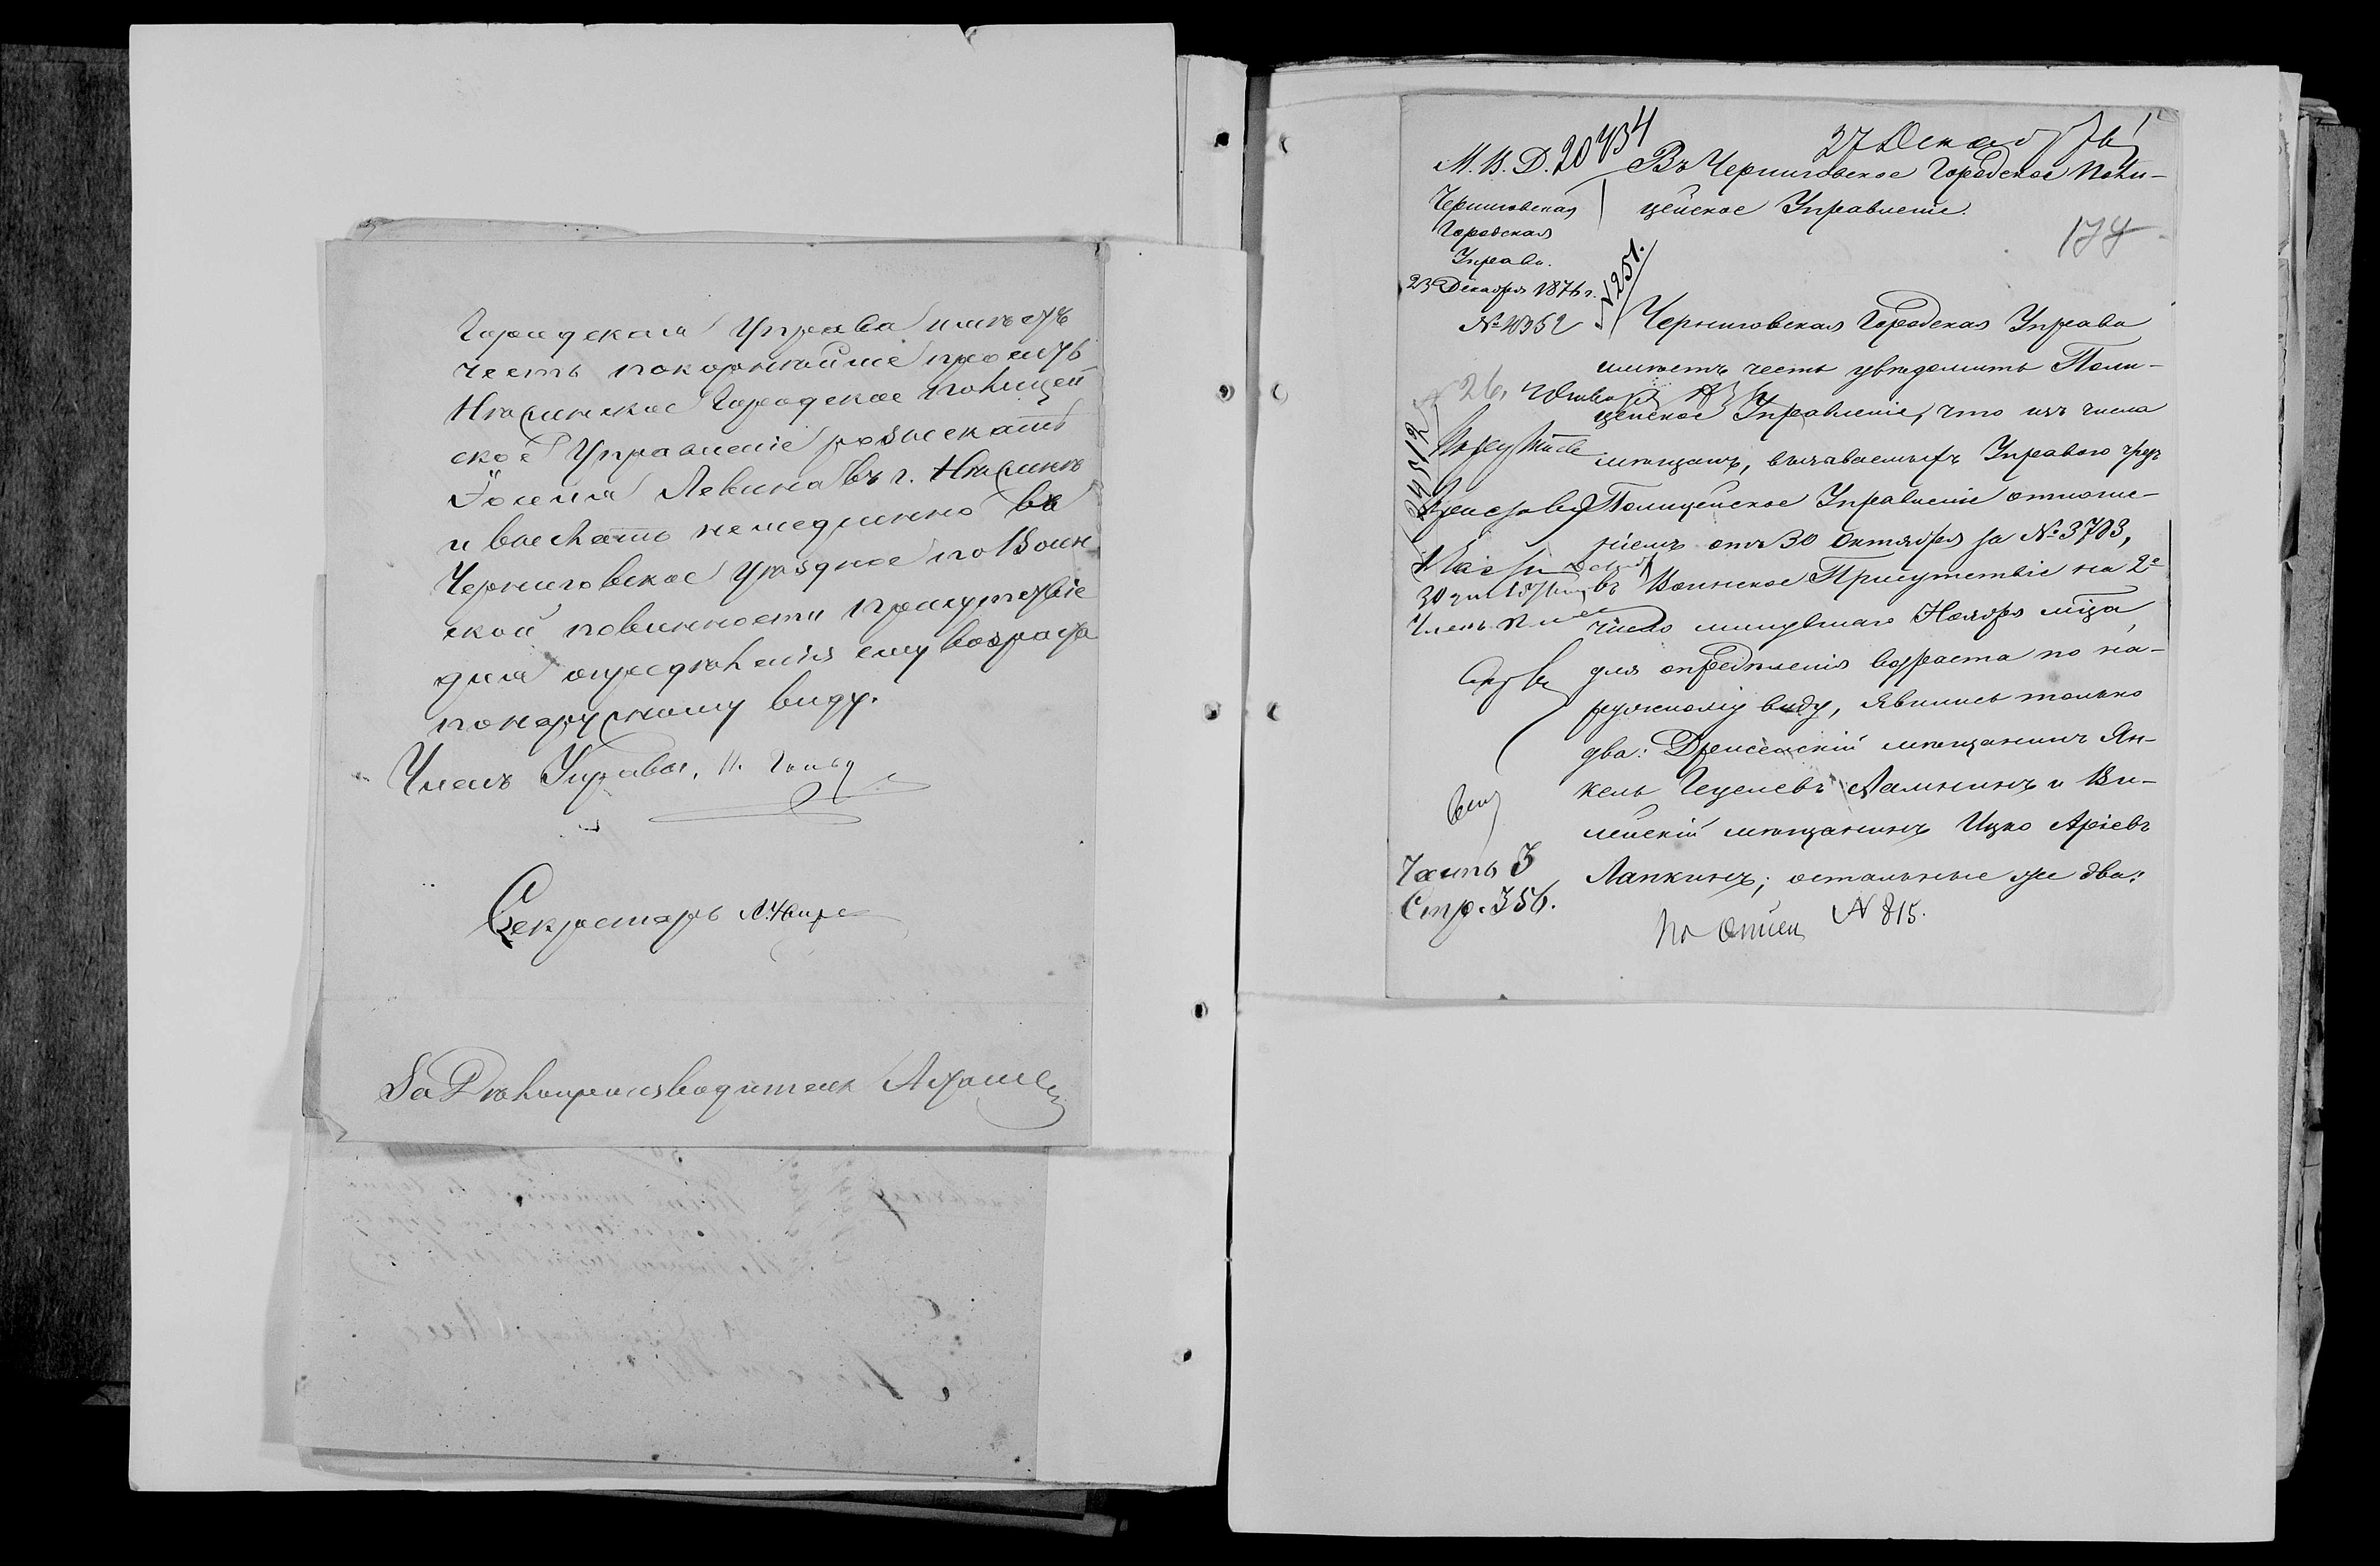 Городская Управа имѣетъ
честь покорнѣйше просить
Нѣжинское Городское Полицей
ское Управленіе розыскать
Іоселя Левина въ г. Нѣжинѣ
и выслать немедленно въ
Черниговское уѣздное по Воин
ской повинности присутствіе
для опредѣленія ему возраста
по наружному виду.
Членъ Управы,
Секретарь
За Дѣлопроизводителя
27 Декаб 76
М. В. Д. 20434
Въ Черниговское Городское Поли-
цейское Управленіе.
Черниговская
Городская
Управа.
23 Декабря 1876 г.
№ 4251.
174
Черниговская Городская Управа
имѣетъ честь увѣдомить Поли-
цейское Управленіе, что изъ числа
мѣщанъ, вызываемыхъ Управою чрезъ
Полицейское Управленіе отноше-
ніемъ отъ 30 Октября за № 3783,
въ Воинское Присутствіе на 2е
число минувшаго Ноября мѣца,
для опредѣленія возраста по на-
ружному виду, явились только
два: Дрисенскій мѣщанинъ Ян-
кель Гецелевъ и Ви-
лейскій мѣщанинъ Ицко Аріевъ
Лапкинъ; остальные же два:
Часть 3
Стр. 356.
По описи № 815.